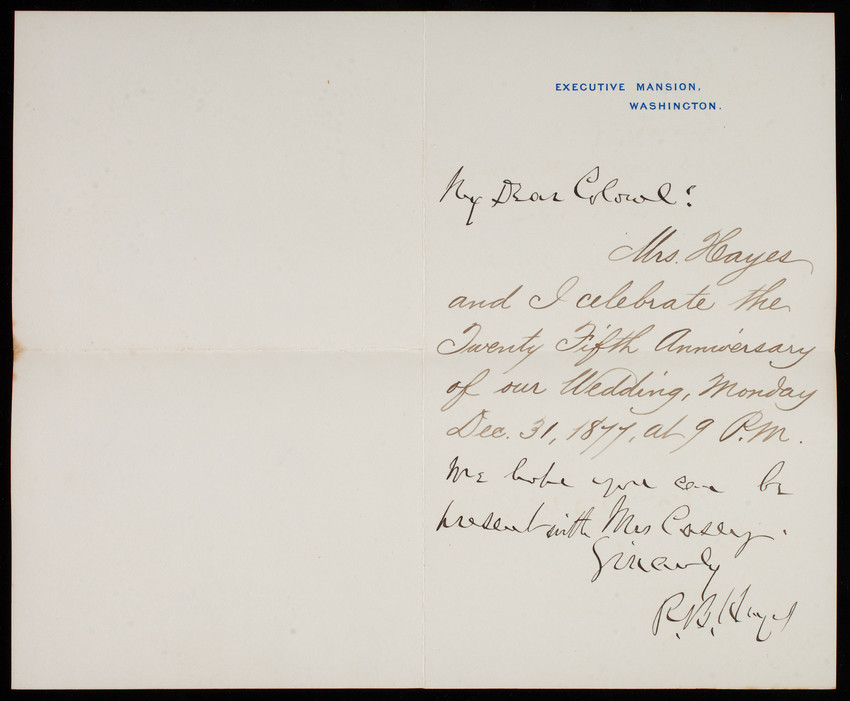 EXECUTIVE MANSION,
WASHINGTON.
My Dear Colonel:
Mrs. Hayes
and I celebrate the
Twenty Fifth Anniversary
of our Wedding, Monday
Dec. 31, 1877, at 9 P.M.
We hope you can be
present with Mrs Casey.
Sincerely
R. B. Hayes